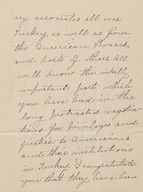 ny associates all over
Turkey as well as from
the American Board,
and hosts of others all
well know the vitally
important part which
you have had in the
long protracted negotia
tions for privileges and
justice to Americans
and their institutions
in Turkey. I congratulate
you that they have been